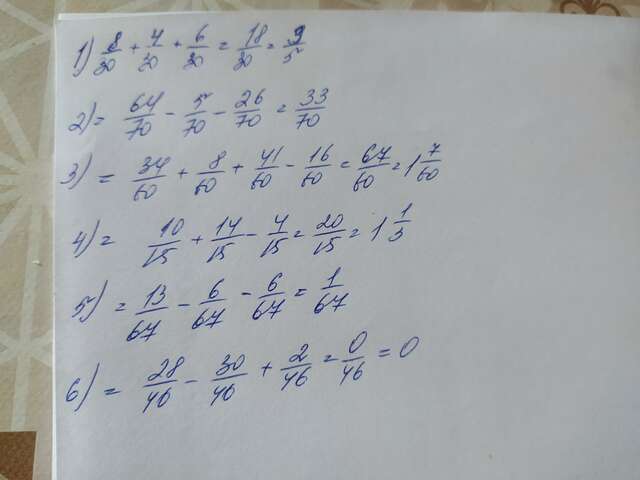 1) 8/30 + 4/30 + 6/30 = 18/30 = 9/5
2) = 64/70 - 5/70 - 26/70 = 33/70
3) = 34/60 + 8/60 + 41/60 - 16/60 = 67/60 = 1 7/60
4) = 10/15 + 14/15 - 4/15 = 20/15 = 1 1/3
5) = 13/67 - 6/67 - 6/67 = 1/67
6) = 28/46 - 30/46 + 2/46 = 0/46 = 0